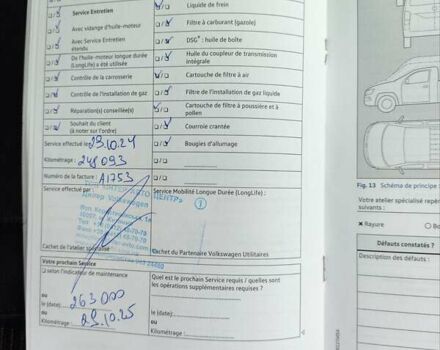 Service Entretien
Avec vidange d'huile-moteur
Avec Service Entretien
étendu
De l'huile-moteur longue durée
(LongLife) a été utilisée
Contrôle de la carrosserie
Contrôle de l'installation de gaz
Réparation(s) conseillée(s)
Souhait du client
(à noter sur l'ordre)
Service effectué le: 29.10.24
Kilométrage: 241 093
Numéro de la facture: A1753
Service effectué par:
Cachet de l'atelier spécialisé
Votre prochain Service
selon l'indicateur de maintenance
ou 263 000
le (date):
ou 29.10.25
Kilométrage:
Liquide de frein
Filtre à carburant (gazole)
DSG®: huile de boîte
Huile du coupleur de transmission
intégrale
Cartouche de filtre à air
Filtre de l'installation de gaz liquide
Cartouche de filtre à poussière et à
pollen
Courroie crantée
Bougies d'allumage
Service Mobilité Longue Durée (LongLife):
1
Cachet du Partenaire Volkswagen Utilitaires
Quel est le prochain Service requis / quelles sont
les opérations supplémentaires requises ?
ou
le (date):
ou
Kilométrage:
Fig. 13 Schéma de principe
Votre atelier spécialisé
suivants :
Rayure
Défauts constatés ?
Description des défauts :